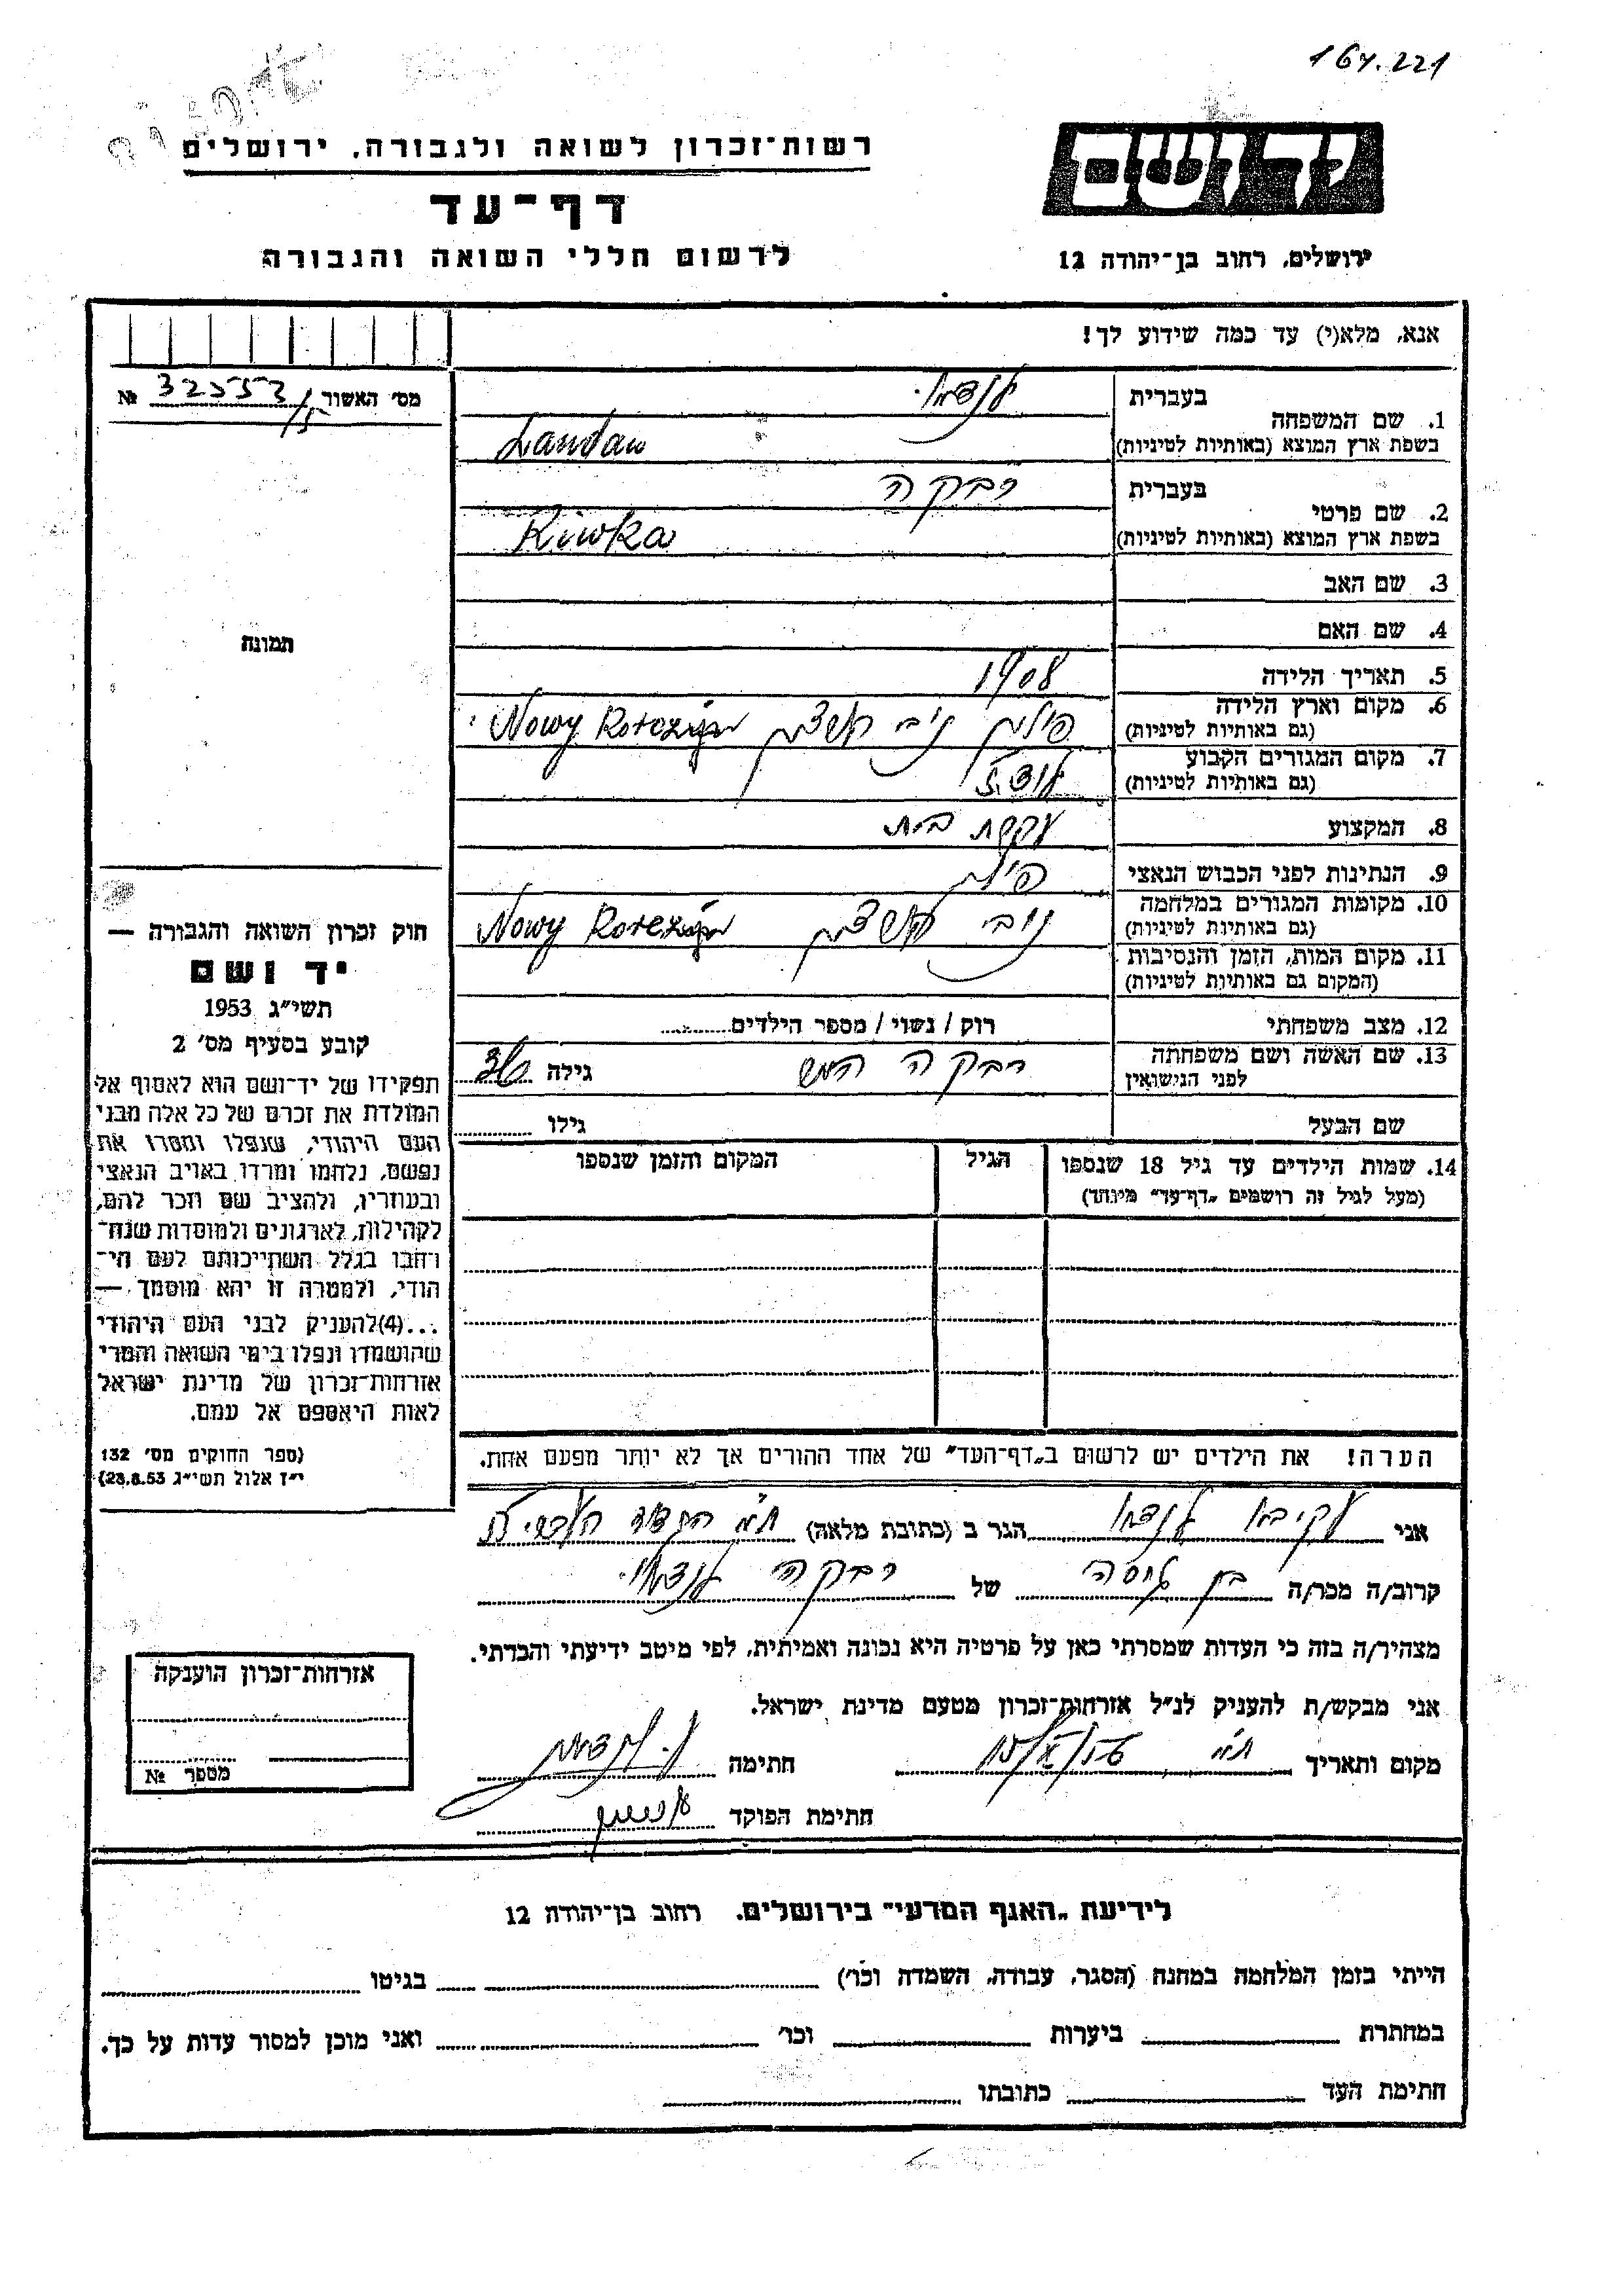 164.221
רשות־זכרון לשואה ולגבורה, ירושלים
ידושם
דף־עד
לרשום חללי השואה והגבורה
ירושלים, רחוב בן־יהודה 12
אנא, מלא(י) עד כמה שידוע לך!
מס׳ האשור 32553/5 №
1. שם המשפחה
בעברית לנדאו.
בשפת ארץ המוצא (באותיות לטיניות) Landau
2. שם פרטי
בעברית רבקה
בשפת ארץ המוצא (באותיות לטיניות) Riwka
3. שם האב
4. שם האם
תמונה
5. תאריך הלידה 1908
6. מקום וארץ הלידה פולין Nowy
(גם באותיות לטיניות)
7. מקום המגורים הקבוע לודז׳
(גם באותיות לטיניות)
8. המקצוע עקרת בית
9. הנתינות לפני הכבוש הנאצי פולין
10. מקומות המגורים במלחמה Nowy
(גם באותיות לטיניות)
11. מקום המות, הזמן והנסיבות
(המקום גם באותיות לטיניות)
12. מצב משפחתי רוק / נשוי / מספר הילדים
13. שם האשה ושם משפחתה רבקה גילה
לפני הנישואין
שם הבעל גילו
14. שמות הילדים עד גיל 18 שנספו הגיל המקום והזמן שנספו
(מעל לגיל זה רושמים „דף־עד״ מיוחד)
חוק זכרון השואה והגבורה —
יד ושם
תשי״ג 1953
קובע בסעיף מס׳ 2
תפקידו של יד־ושם הוא לאסוף אל
המולדת את זכרם של כל אלה מבני
העם היהודי, שנפלו ומסרו את
נפשם, נלחמו ומרדו באויב הנאצי
ובעוזריו, ולהציב שם וזכר להם,
לקהילות, לארגונים ולמוסדות שנח־
רחבו בגלל השתייכותם לעם הי־
הודי, ולמטרה זו יהא מוסמך —
...(4) להעניק לבני העם היהודי
שהושמדו ונפלו בימי השואה והמרי
אזרחות־זכרון של מדינת ישראל
לאות היאספם אל עמם.
(ספר החוקים מס׳ 132
י״ז אלול תשי״ג 28.8.53)
הערה! את הילדים יש לרשום ב„דף־העד״ של אחד ההורים אך לא יותר מפעם אחת.
אני עקיבא לנדאו הגר ב (כתובת מלאה)
קרוב/ה מכר/ה בן של רבקה לנדאו.
מצהיר/ה בזה כי העדות שמסרתי כאן על פרטיה היא נכונה ואמיתית, לפי מיטב ידיעתי והכרתי.
אני מבקש/ת להעניק לנ״ל אזרחות־זכרון מטעם מדינת ישראל.
מקום ותאריך חתימה
חתימת הפוקד
אזרחות־זכרון הוענקה
מספר №
לידיעת „האגף המדעי״ בירושלים. רחוב בן־יהודה 12
הייתי בזמן המלחמה במחנה (הסגר, עבודה, השמדה וכו׳) בגיטו
במחתרת ביערות וכו׳ ואני מוכן למסור עדות על כך.
חתימת העד כתובתו